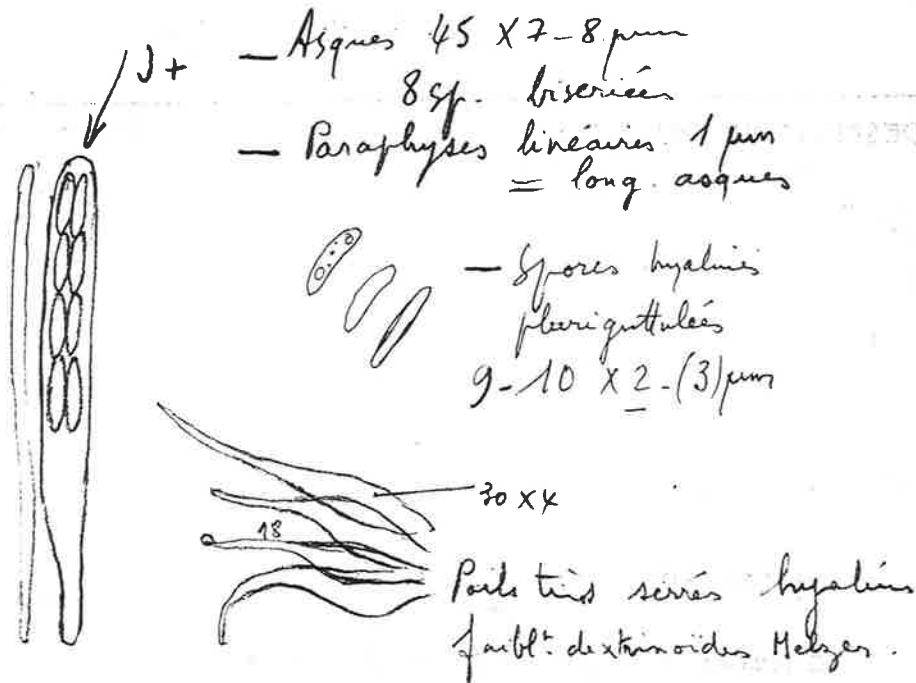 J+
— Asques 45 X 7-8 µm
8 sp. bisériées
— Paraphyses linéaires 1 µm
= long. asques
— Spores hyalines
pluriguttulées
9-10 X 2-(3) µm
30 x 4
18
Poils très serrés hyalins
faiblt. dextrinoïdes Melzer.